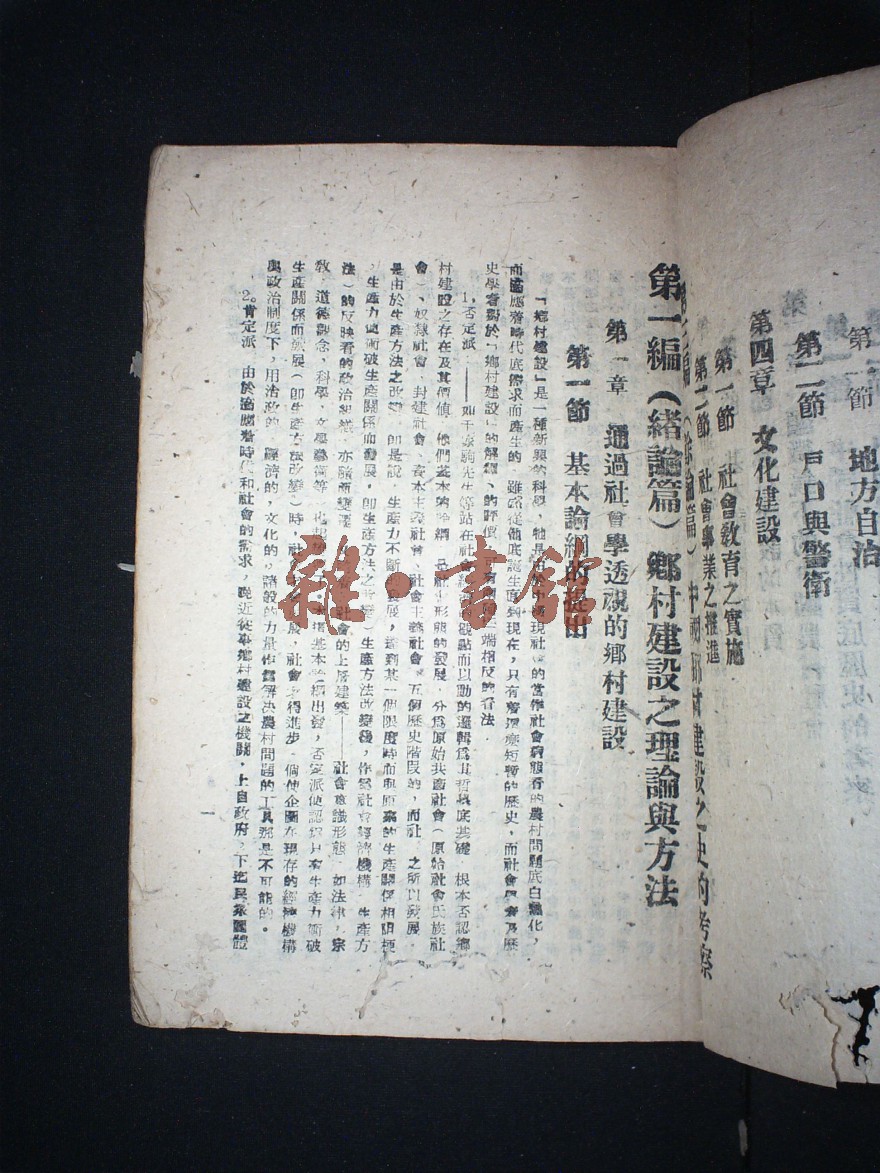 第一節 地方自治
第二節 戶口與警衛
第四章 文化建設
第一節 社會教育之實施
第二節 社會事業之推進
鄉村建設之史的考察
第一編（緒論篇）鄉村建設之理論與方法
第一章 通過社會學透視的鄉村建設
第一節 基本論綱的提出
「鄉村建設」是一種新興的科學，牠是由於中國現社會的當作社會病態看的農村問題底白熱化，
而適應着時代底需求而產生的，雖然從他底誕生底到現在，只有着極短暫的歷史，而社會學者乃歷
史學者對於「鄉村建設」的解釋、的評價，已有極端相反的看法。
1，否定派——如千家駒先生等站在社會經濟的觀點而以動的邏輯爲其哲學底基礎，根本否認鄉
村建設之存在及其價值，他們基本的論綱，是社會形態的發展，分爲原始共產社會（原始社會氏族社
會）、奴隸社會、封建社會、資本主義社會、社會主義社會、五個歷史階段的，而社 之所以發展，
是由於生產方法之改變，卽是說，生產力不斷 發展，達到某一個限度時而與原來的生產關係相阻梗
，生產力便衝破生產關係而發展，卽生產方法之改變）生產方法改變後，作爲社會經濟機構（生產方
法）的反映看的政治組織，亦隨而變遷， 社會的上層建築——社會意識形態，如法律，宗
教，道德觀念，科學，文學藝術等，也 基本論綱出發，否定派便認爲只有生產力衝破
生產關係而發展（卽生產方法改變）時，社 發展，社會 得進步，倘使企圖在現存的經濟機構
與政治制度下，用治政的，經濟的，文化的，諸般的力量作爲解決農村問題的工具那是不可能的。
2。肯定派 由於適應着時代和社會的需求，晚近從事鄉村建設之機關，上自政府，下迄民衆團體
一
雜·書館